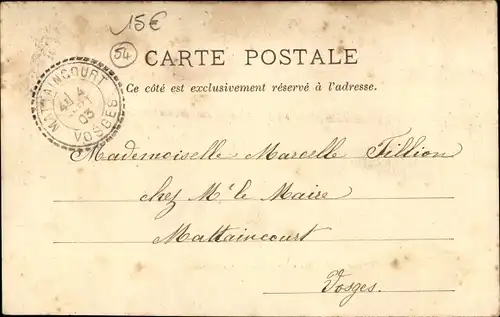 15€
54
CARTE POSTALE
Ce côté est exclusivement réservé à l'adresse.
MATTAINCOURT
4
03
VOSGES
Mademoiselle Marcelle Tillion
chez Mr le Maire
Mattaincourt
Vosges.